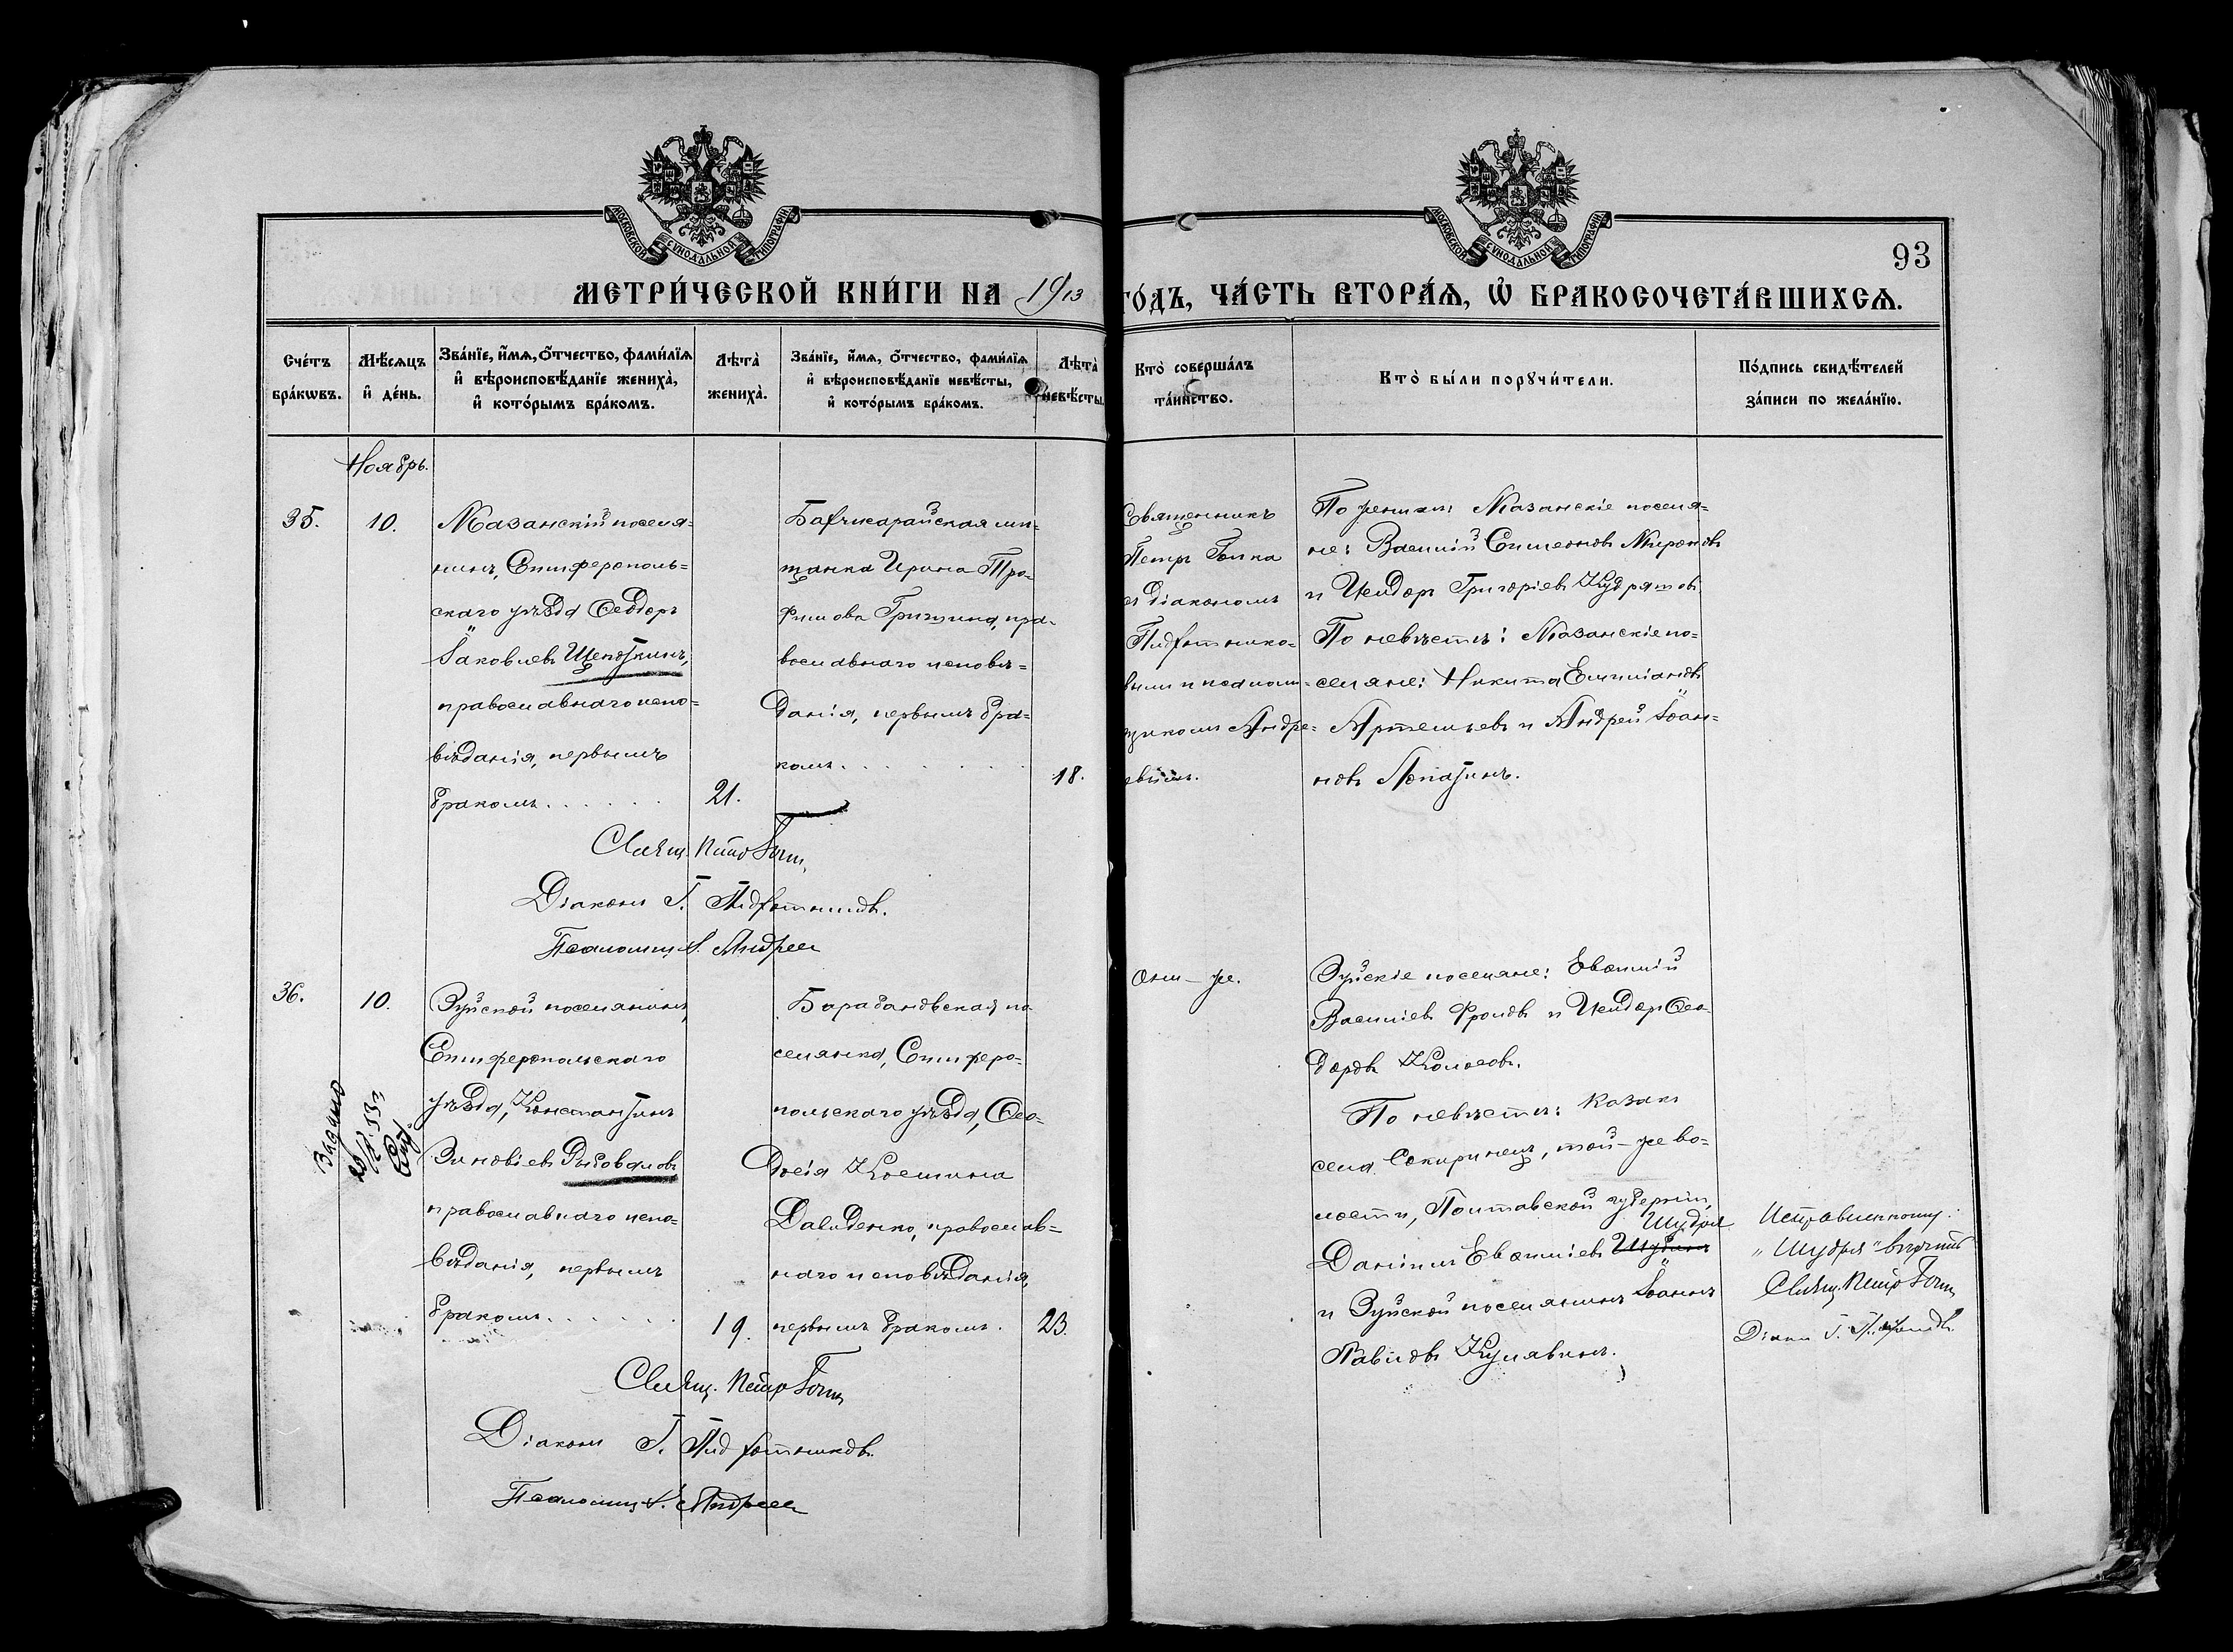 МОСКОВСКОЙ СѴНОДАЛЬНОЙ ТИПОГРАФІИ
МОСКОВСКОЙ СѴНОДАЛЬНОЙ ТИПОГРАФІИ
93
МЕТРИ́ЧЕСКОЙ КНИ́ГИ НА 1913 ГО́ДЪ, ЧА́СТЬ ВТОРА́Ѧ, Ѡ҆ БРАКОСОЧЕТА́ВШИХСѦ.
Сче́тъ
бра́кѡвъ.
Мѣ́сѧцъ
и҆ де́нь.
Зва́нїе, и҆́мѧ, ѻ҆́тчество, фами́лїѧ
и҆ вѣроисповѣ́данїе жениха̀,
и҆ кото́рымъ бра́комъ.
Лѣта̀
жениха̀.
Зва́нїе, и҆́мѧ, ѻ҆́тчество, фами́лїѧ
и҆ вѣроисповѣ́данїе невѣ́сты,
и҆ кото́рымъ бра́комъ.
Лѣта̀
невѣ́сты.
Кто̀ соверша́лъ
та́инство.
Кто̀ бы́ли порꙋчи́тели.
По́дпись свидѣ́телей
за́писи по жела́нїю.
Ноябрь.
35.
10.
Мазанскій поселя=
нинъ, Симферополь=
скаго уѣзда Ѳеодоръ
Іаковлевъ Щепоткинъ,
православнаго испо=
вѣданія, первымъ
бракомъ. . . . . .
21.
Бахчисарайская мѣ=
щанка Ирина Тро=
фимова Гришина, пра=
вославнаго исповѣ=
данія, первымъ бра=
комъ. . . . . . .
18.
Священникъ
Петръ
съ діакономъ
и псаломщ=
икомъ Андре=
евымъ.
По жениху: Мазанскіе поселя=
не: Василій Симеоновъ Мироновъ
и Исидоръ Григоріевъ Кудрятовъ
По невѣстѣ: Мазанскіе по=
селяне: Никита Емиліановъ
Артемьевъ и Андрей Іоан=
новъ Лопатинъ.
Свящ. Петръ
Діаконъ Г.
Псаломщ. А. Андреевъ
36.
10.
Зуйской поселянинъ,
Симферопольскаго
уѣзда, Константинъ
Зиновіевъ Рыбоваловъ
православнаго испо=
вѣданія, первымъ
бракомъ. . . . . .
19.
Барабановская по=
селянка, Симферо=
польскаго уѣзда, Ѳео=
досія Космина
Давиденко, православ=
наго исповѣданія,
первымъ бракомъ.
23.
Они-же.
Зуйскіе поселяне: Евѳимій
Василіевъ Фроловъ и Исидоръ Ѳео=
доровъ Колосовъ.
По невѣстѣ: Казакъ
села Сокиринецъ, той-же во=
лости, Полтавской губерніи,
Даніилъ Евѳиміевъ Шудря
и Зуйской поселянинъ Іоаннъ
Павловъ Кулявинъ.
Исправленному:
"Шудря" вѣрить
Свящ. Петръ
Діаконъ Г.
Свящ. Петръ
Діаконъ Г.
Псаломщ. А. Андреевъ